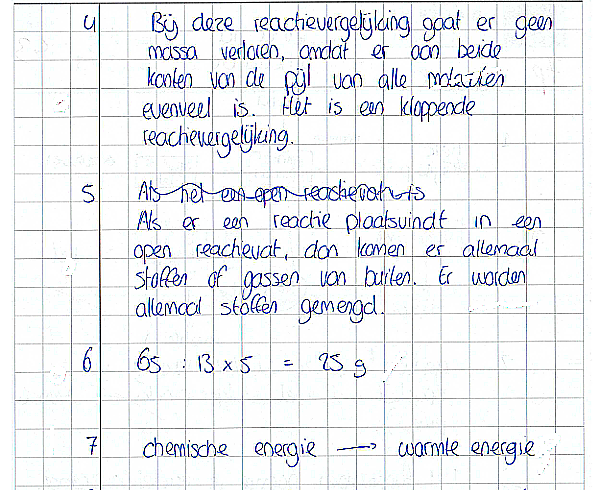 4 Bij deze reactievergelijking gaat er geen
massa verloren, omdat er aan beide
kanten van de pijl van alle
evenveel is. Het is een kloppende
reactievergelijking.
5 Als het een open reactievat is
Als er een reactie plaatsvindt in een
open reactievat, dan komen er allemaal
stoffen of gassen van buiten. Er worden
allemaal stoffen gemengd.
6 65 : 13 x 5 = 25 g
7 chemische energie → warmte energie